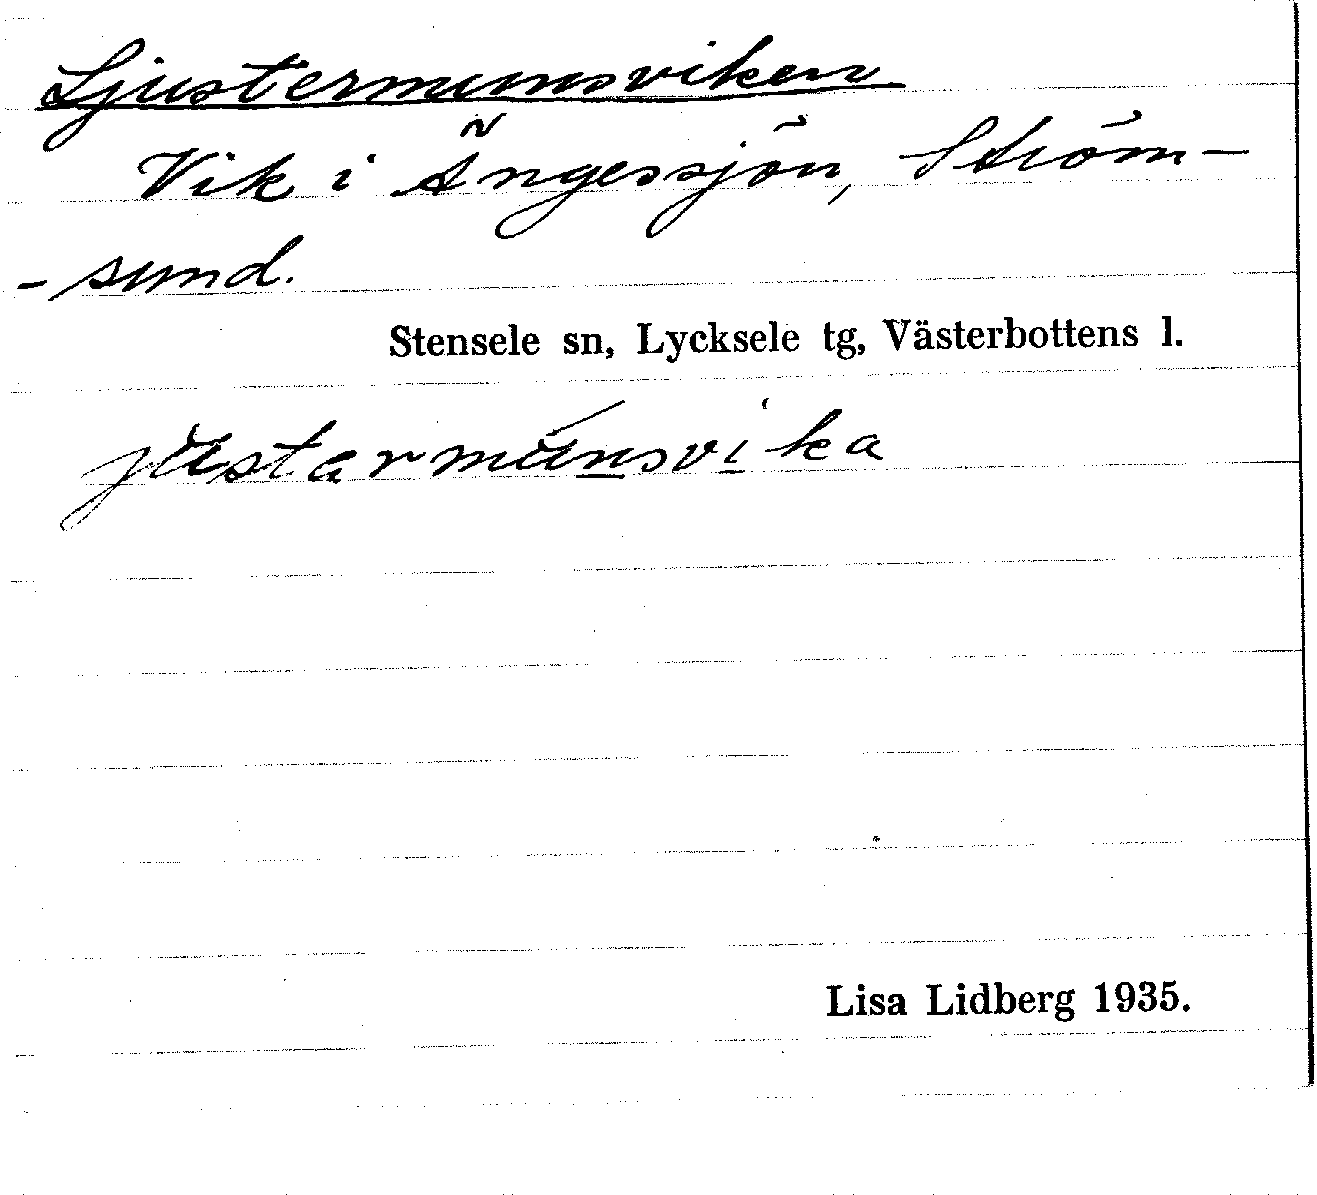 Ljustermunsviken
Vik i Ängessjön, Ström-
-sund.
Stensele sn, Lycksele tg, Västerbottens l.
jùstarmúnsvìka
Lisa Lidberg 1935.